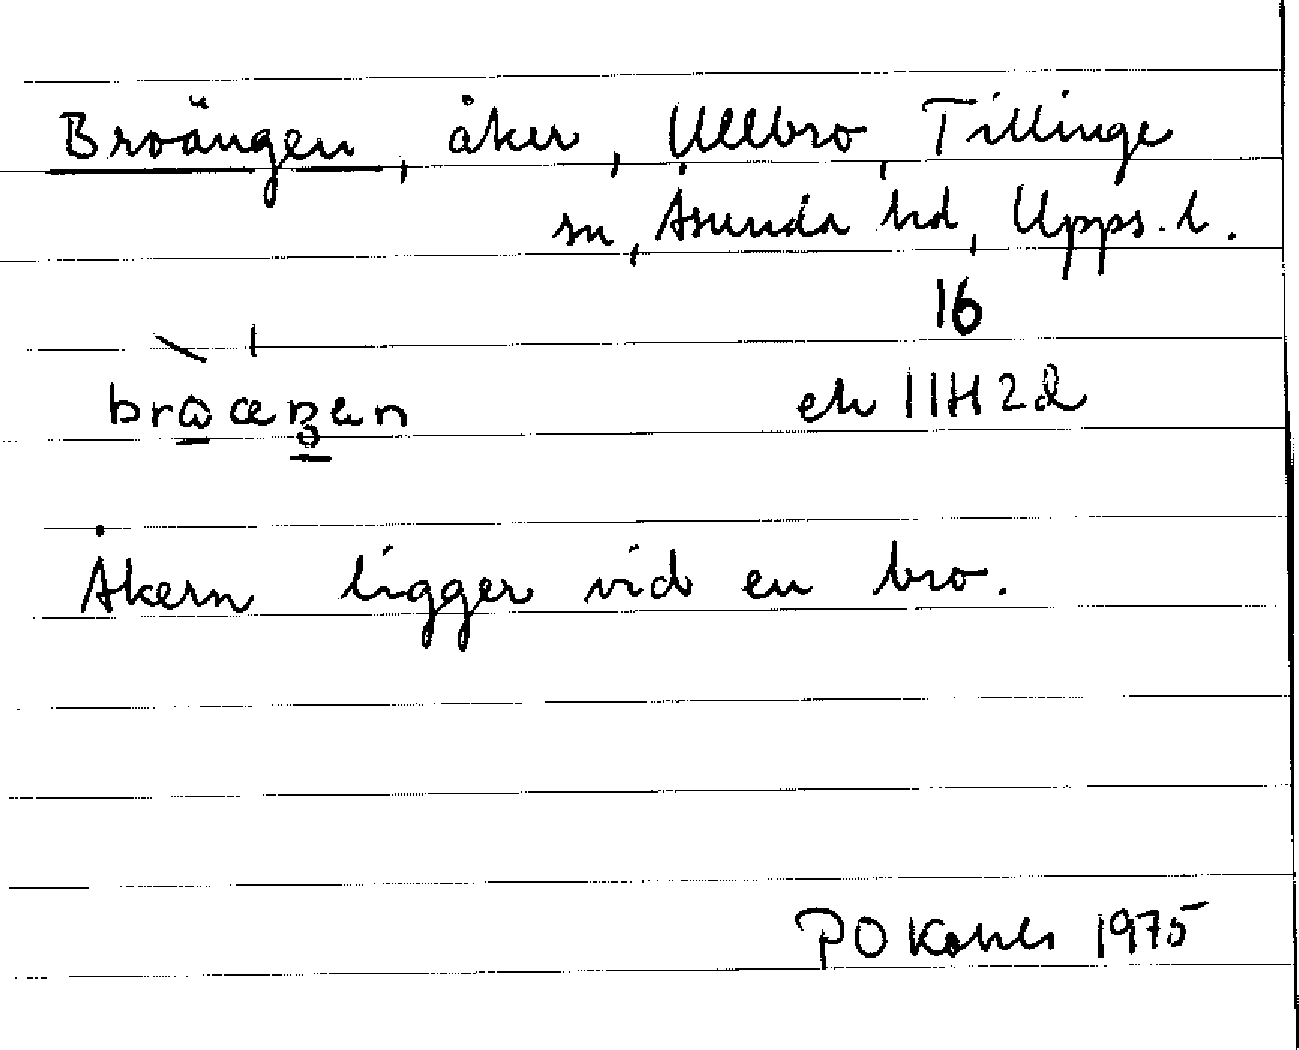 Broängen, åker, Ullbro, Tillinge
sn, Åsunda hd, Upps. l.
16
ek 11H2d
Åkern ligger vid en bro.
PO 1975